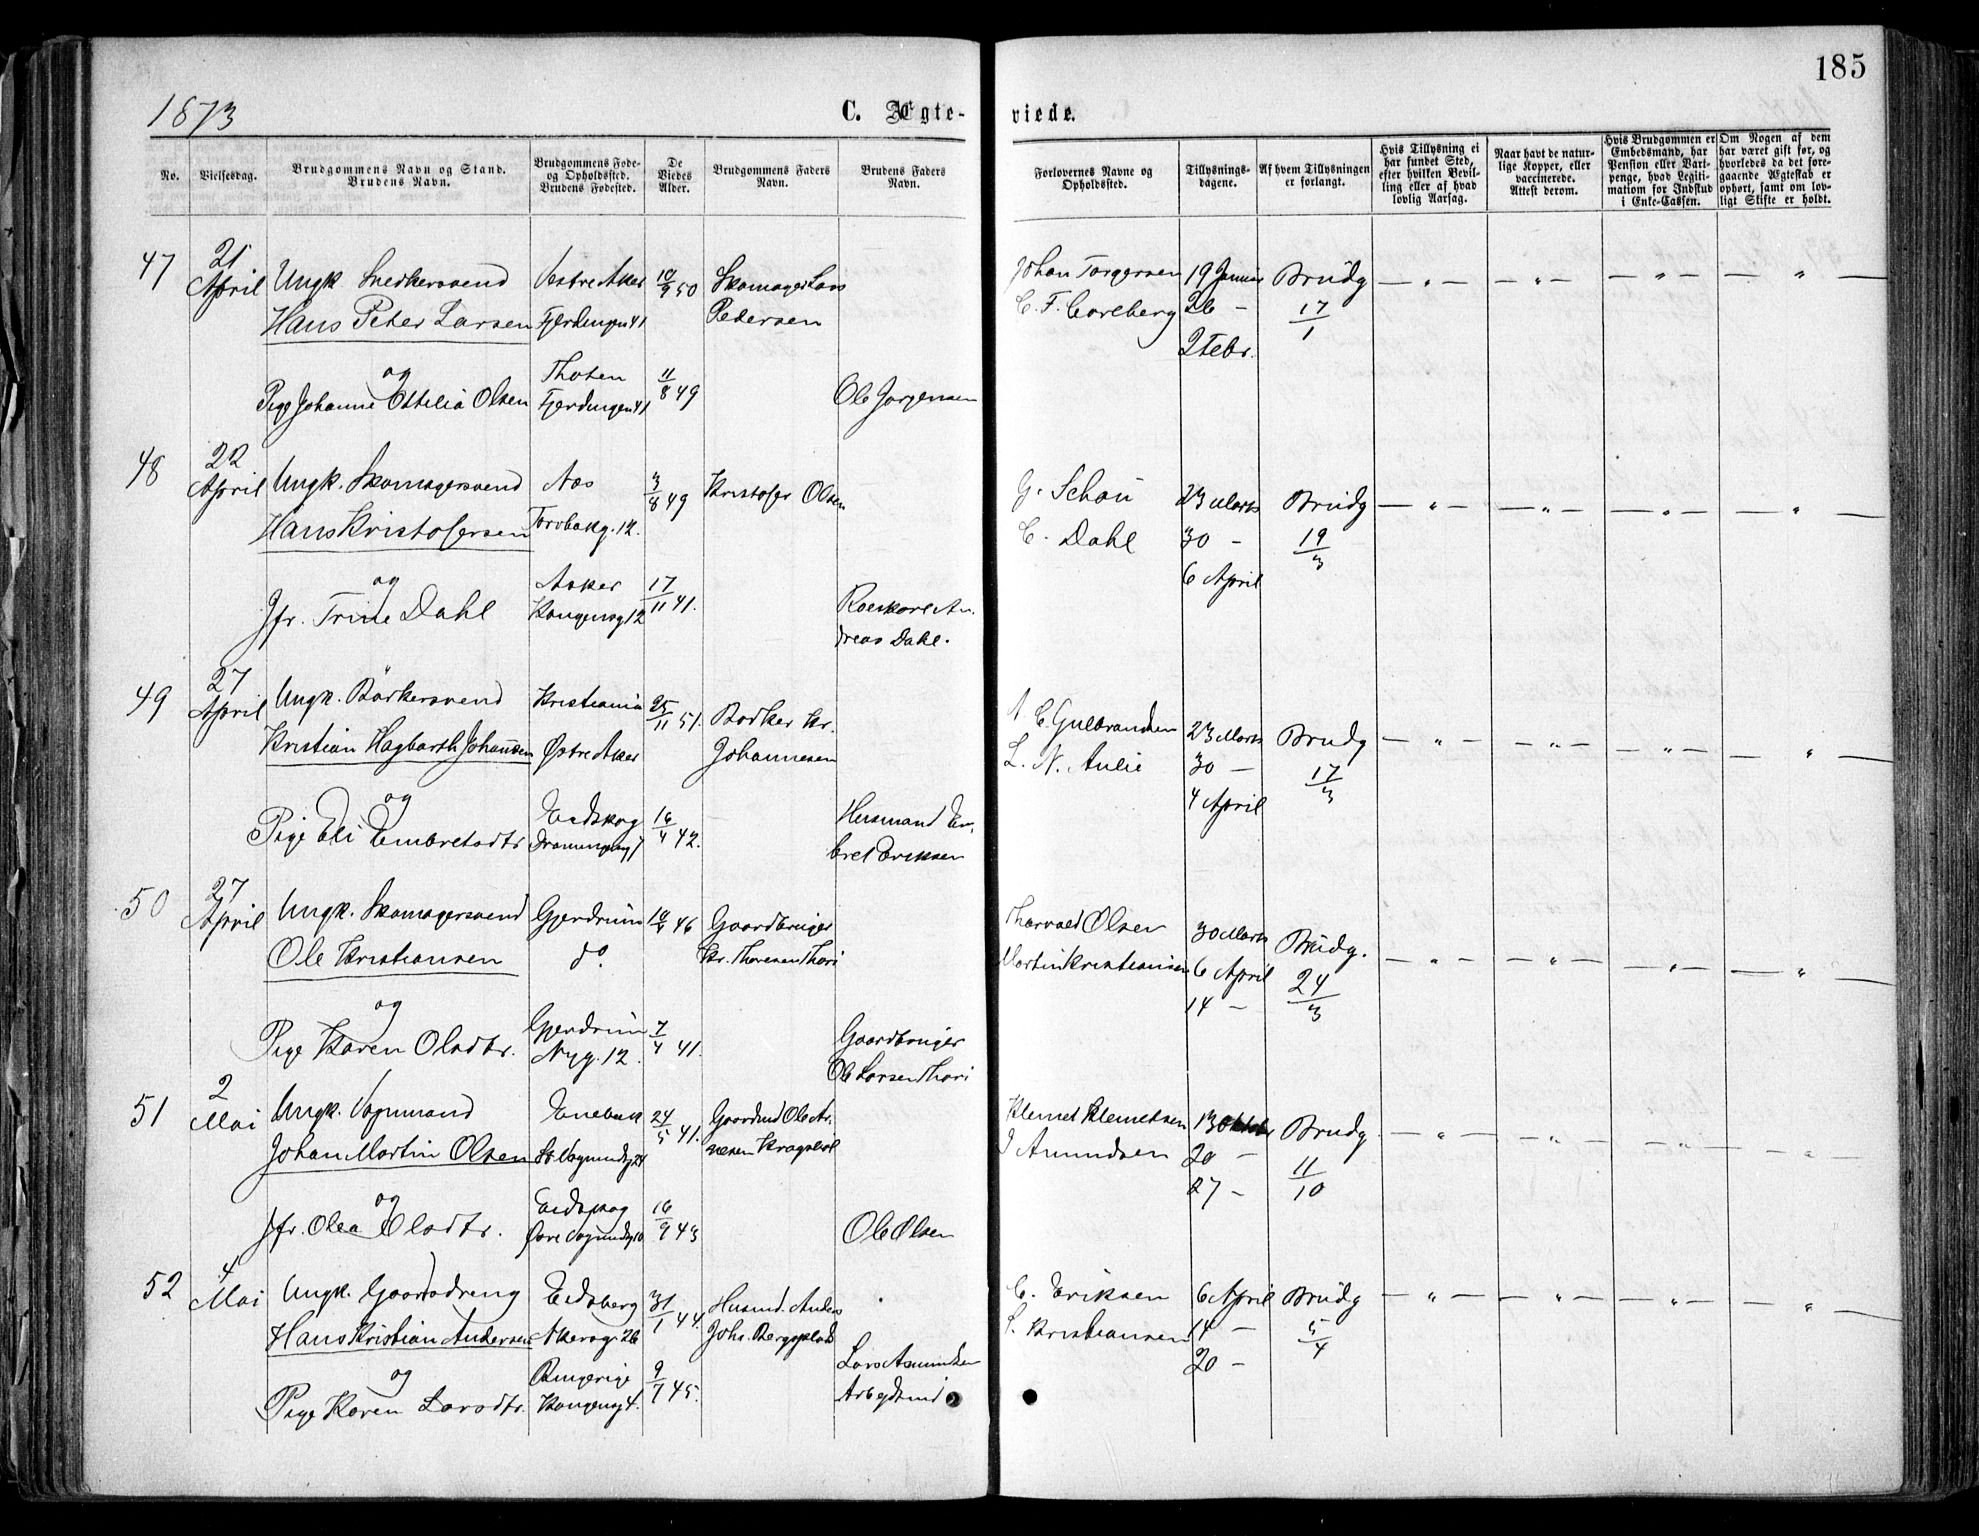 185
1873
C. Ægte-
viede.
No.
Vielsesdag.
Brudgommens Navn og Stand.
Brudens Navn.
Brudgommens Føde-
og Opholdssted.
Brudens Fødested.
De
Viedes
Alder.
Brudgommens Faders
Navn.
Brudens Faders
Navn.
Forlovernes Navne og
Opholdssted.
Tillysnings-
dagene.
Af hvem Tillysningen
er forlangt.
Hvis Tillysning ei
har fundet Sted,
efter hvilken Bevil-
ling eller af hvad
lovlig Aarsag.
Naar havt de natur-
lige Kopper, eller
vaccinerede.
Attest derom.
Hvis Brudgommen er
Embedsmand, har
Pension eller Vart-
penge, hvad Legiti-
mation for Indskud
i Enke-Cassen.
Om Nogen af dem
har været gift før, og
hvorledes da det fore-
gaaende Ægteskab er
ophørt, samt om lov-
ligt Skifte er holdt.
47
21
April
Ungk. Snedkersvend
Hans Peter Larsen
og
Pige Johanne Ottilia Olsen
Vestre Aker
Fjerdingen 41
Thoten
Fjerdingen 41
10/9 50
11/8 49
Skomager Lars
Pedersen
Ole Jørgensen
Johan Torgersen
C. F. Carlberg
19 Januar
26 -
2 Febr.
Brudg
17/1
48
22
April
Ungk. Skomagersvend
Hans Kristofersen
og
Jfr. Trine Dahl
Næs
Torvbakg. 12.
Asker
Kongensg 12
3/8 49
17/11 41.
Kristofer Olsen
Roeskarl An-
dreas Dahl.
G. Schou
C. Dahl
23 Marts
30 -
6 April
Brudg
19/3
49
27
April
Ungk. Bødkersvend
Kristian Hagbarth Johansen
og
Pige Eli Embretsdtr
Kristiania
Østre Aker
Eidskog
Drammensvg 7
25/11 51.
16/4 42.
Bødker Kr.
Johannesen
Husmand Em-
bret Eriksen
C. Gulbrandsen
L. N. Aulie
23 Marts
30 -
4 April
Brudg
17/3
50
27
April
Ungk. Skomagersvend
Ole Kristiansen
og
Pige Karen Olsdtr.
Gjerdrum
do.
Gjerdrum
Nyg. 12.
46
7/4 41.
Gaardbruger
Kr. Thoresen Thori
Gaardbruger
Ole Larsen Thori
Thorvald Olsen
Martin Kristiansen
30 Marts
6 April
14 -
Brudg.
24/3
51
2
Mai
Ungk. Vognmand
Johan Martin Olsen
og
Jfr. Olea Olsdtr.
Enebak
St. Vognmandsg 24
Eidskog
Øvre Vognmandsg 10
24/5 41.
16/9 43
Gaardmd Ole Ar-
nesen Kragslot
Ole Olsen
Klemet Klemetsen
J Amundsen
13 Oktobr
20 -
27 -
Brudg
11/10
52
4
Mai
Ungk. Gaardsdreng
Hans Kristian Andersen
og
Pige Karen Larsdtr.
Eidsberg
Akersg. 26
Ringerige
Kongensg 4.
31/1 44.
9/7 45.
Husmd. Anders
Johs. Bergsplads
Lars Asmundsen
Arbeidsmd
C. Eriksen
L. Kristiansen
6 April
14 -
20 -
Brudg
5/4